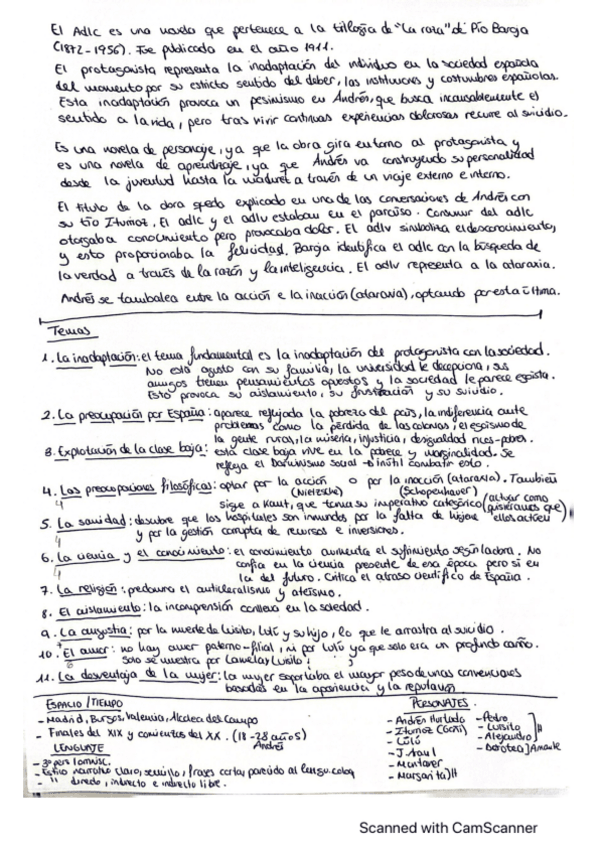 El Adlc es una novela que pertenece a la trilogía de "La raza" de Pío Baroja
(1872-1956). Fue publicada en el año 1911.
El protagonista representa la inadaptación del individuo en la sociedad española
del momento por su estricto sentido del deber, las instituciones y costumbres españolas.
Esta inadaptación provoca un pesimismo en Andrés, que busca incansablemente el
sentido a la vida, pero tras vivir continuas experiencias dolorosas recurre al suicidio.
Es una novela de personaje, ya que la obra gira entorno al protagonista y
es una novela de aprendizaje, ya que Andrés va construyendo su personalidad
desde la juventud hasta la madurez a través de un viaje externo e interno.
El título de la obra queda explicado en una de las conversaciones de Andrés con
su tío Iturrioz. El adlc y el adlv estaban en el paraíso. Consumir del adlc
otorgaba conocimiento pero provocaba dolor. El adlv simboliza el desconocimiento,
y esto proporcionaba la felicidad. Baroja identifica el adlc con la búsqueda de
la verdad a través de la razón y la inteligencia. El adlv representa a la ataraxia.
Andrés se tambalea entre la acción e la inacción (ataraxia), optando por esta última.
Temas
1. La inadaptación: el tema fundamental es la inadaptación del protagonista con la sociedad.
No está agusto con su familia, la universidad le decepciona, sus
amigos tienen pensamientos opuestos y la sociedad le parece egoísta.
Esto provoca su aislamiento, su frustración y su suicidio.
2. La preocupación por España: aparece reflejada la pobreza del país, la indiferencia ante
problemas como la pérdida de las colonias, el egoísmo de
la gente rural, la miseria, injusticia, desigualdad ricos-pobres.
3. Explotación de la clase baja: esta clase baja vive en la pobreza y marginalidad. Se
refleja el Darwinismo social → inútil combatir esto.
4. Las preocupaciones filosóficas: optar por la acción o por la inacción (ataraxia). También
(Nietzsche) (Schopenhauer)
sigue a Kant, que toma su imperativo categórico (actuar como
quisieramos que
ellos actúen)
5. La sanidad: descubre que los hospitales son inmundos por la falta de higiene
y por la gestión corrupta de recursos e inversiones.
6. La ciencia y el conocimiento: el conocimiento aumenta el sufrimiento según la obra. No
confía en la ciencia presente de esa época pero sí en
la del futuro. Critica el atraso científico de España.
7. La religión: predomina el anticlericalismo y ateísmo.
8. El aislamiento: la incomprensión conlleva en la soledad.
9. La angustia: por la muerte de Luisito, Lulú y su hijo, lo que le arrastra al suicidio.
10. El amor: no hay amor paterno-filial, ni por Lulú ya que solo era un profundo cariño.
Solo se muestra por Luisito
11. La desventaja de la mujer: la mujer soportaba el mayor peso de unas convenciones
basadas en la apariencia y la reputación
ESPACIO/TIEMPO
- Madrid, Burgos, Valencia, Alcolea del Campo
- Finales del XIX y comientos del XX. (18-28 años)
Andrés
LENGUAJE
- 3ª pers
- Estilo narrativo claro, sencillo, frases cortas, parecido al lengu. coloq
- " directo, indirecto e indirecto libre.
PERSONAJES.
- Andrés Hurtado
- Iturrioz
- Lulú
- J. Aracil
- Montaner
- Margarita)H
- Pedro
- Luisito
- Alejandro
H
- Dorotea
Scanned with CamScanner